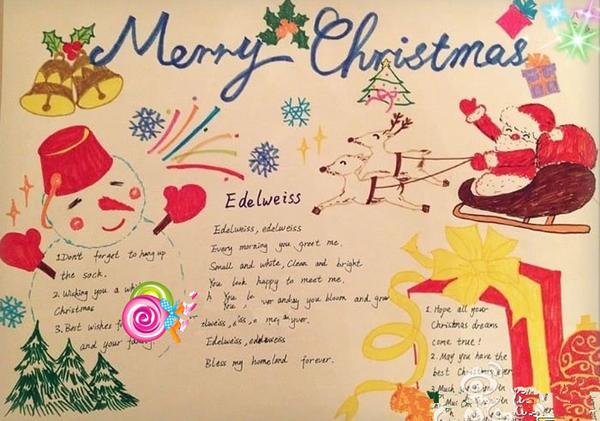 Merry Christmas
Edelweiss
Edelweiss, edelweiss
Every morning you greet me.
Small and white, Clean and bright
You look happy to meet me.
you bloom and
Edelweiss, edelweiss
Bless my homeland forever.
1.Don't forget to hang up
the sock.
2. Wishing you a
Christmas
3. Best wishes
and your family
1. Hope all your
Christmas dreams
come true!
2. May you have the
best Christmas ever
3. Much